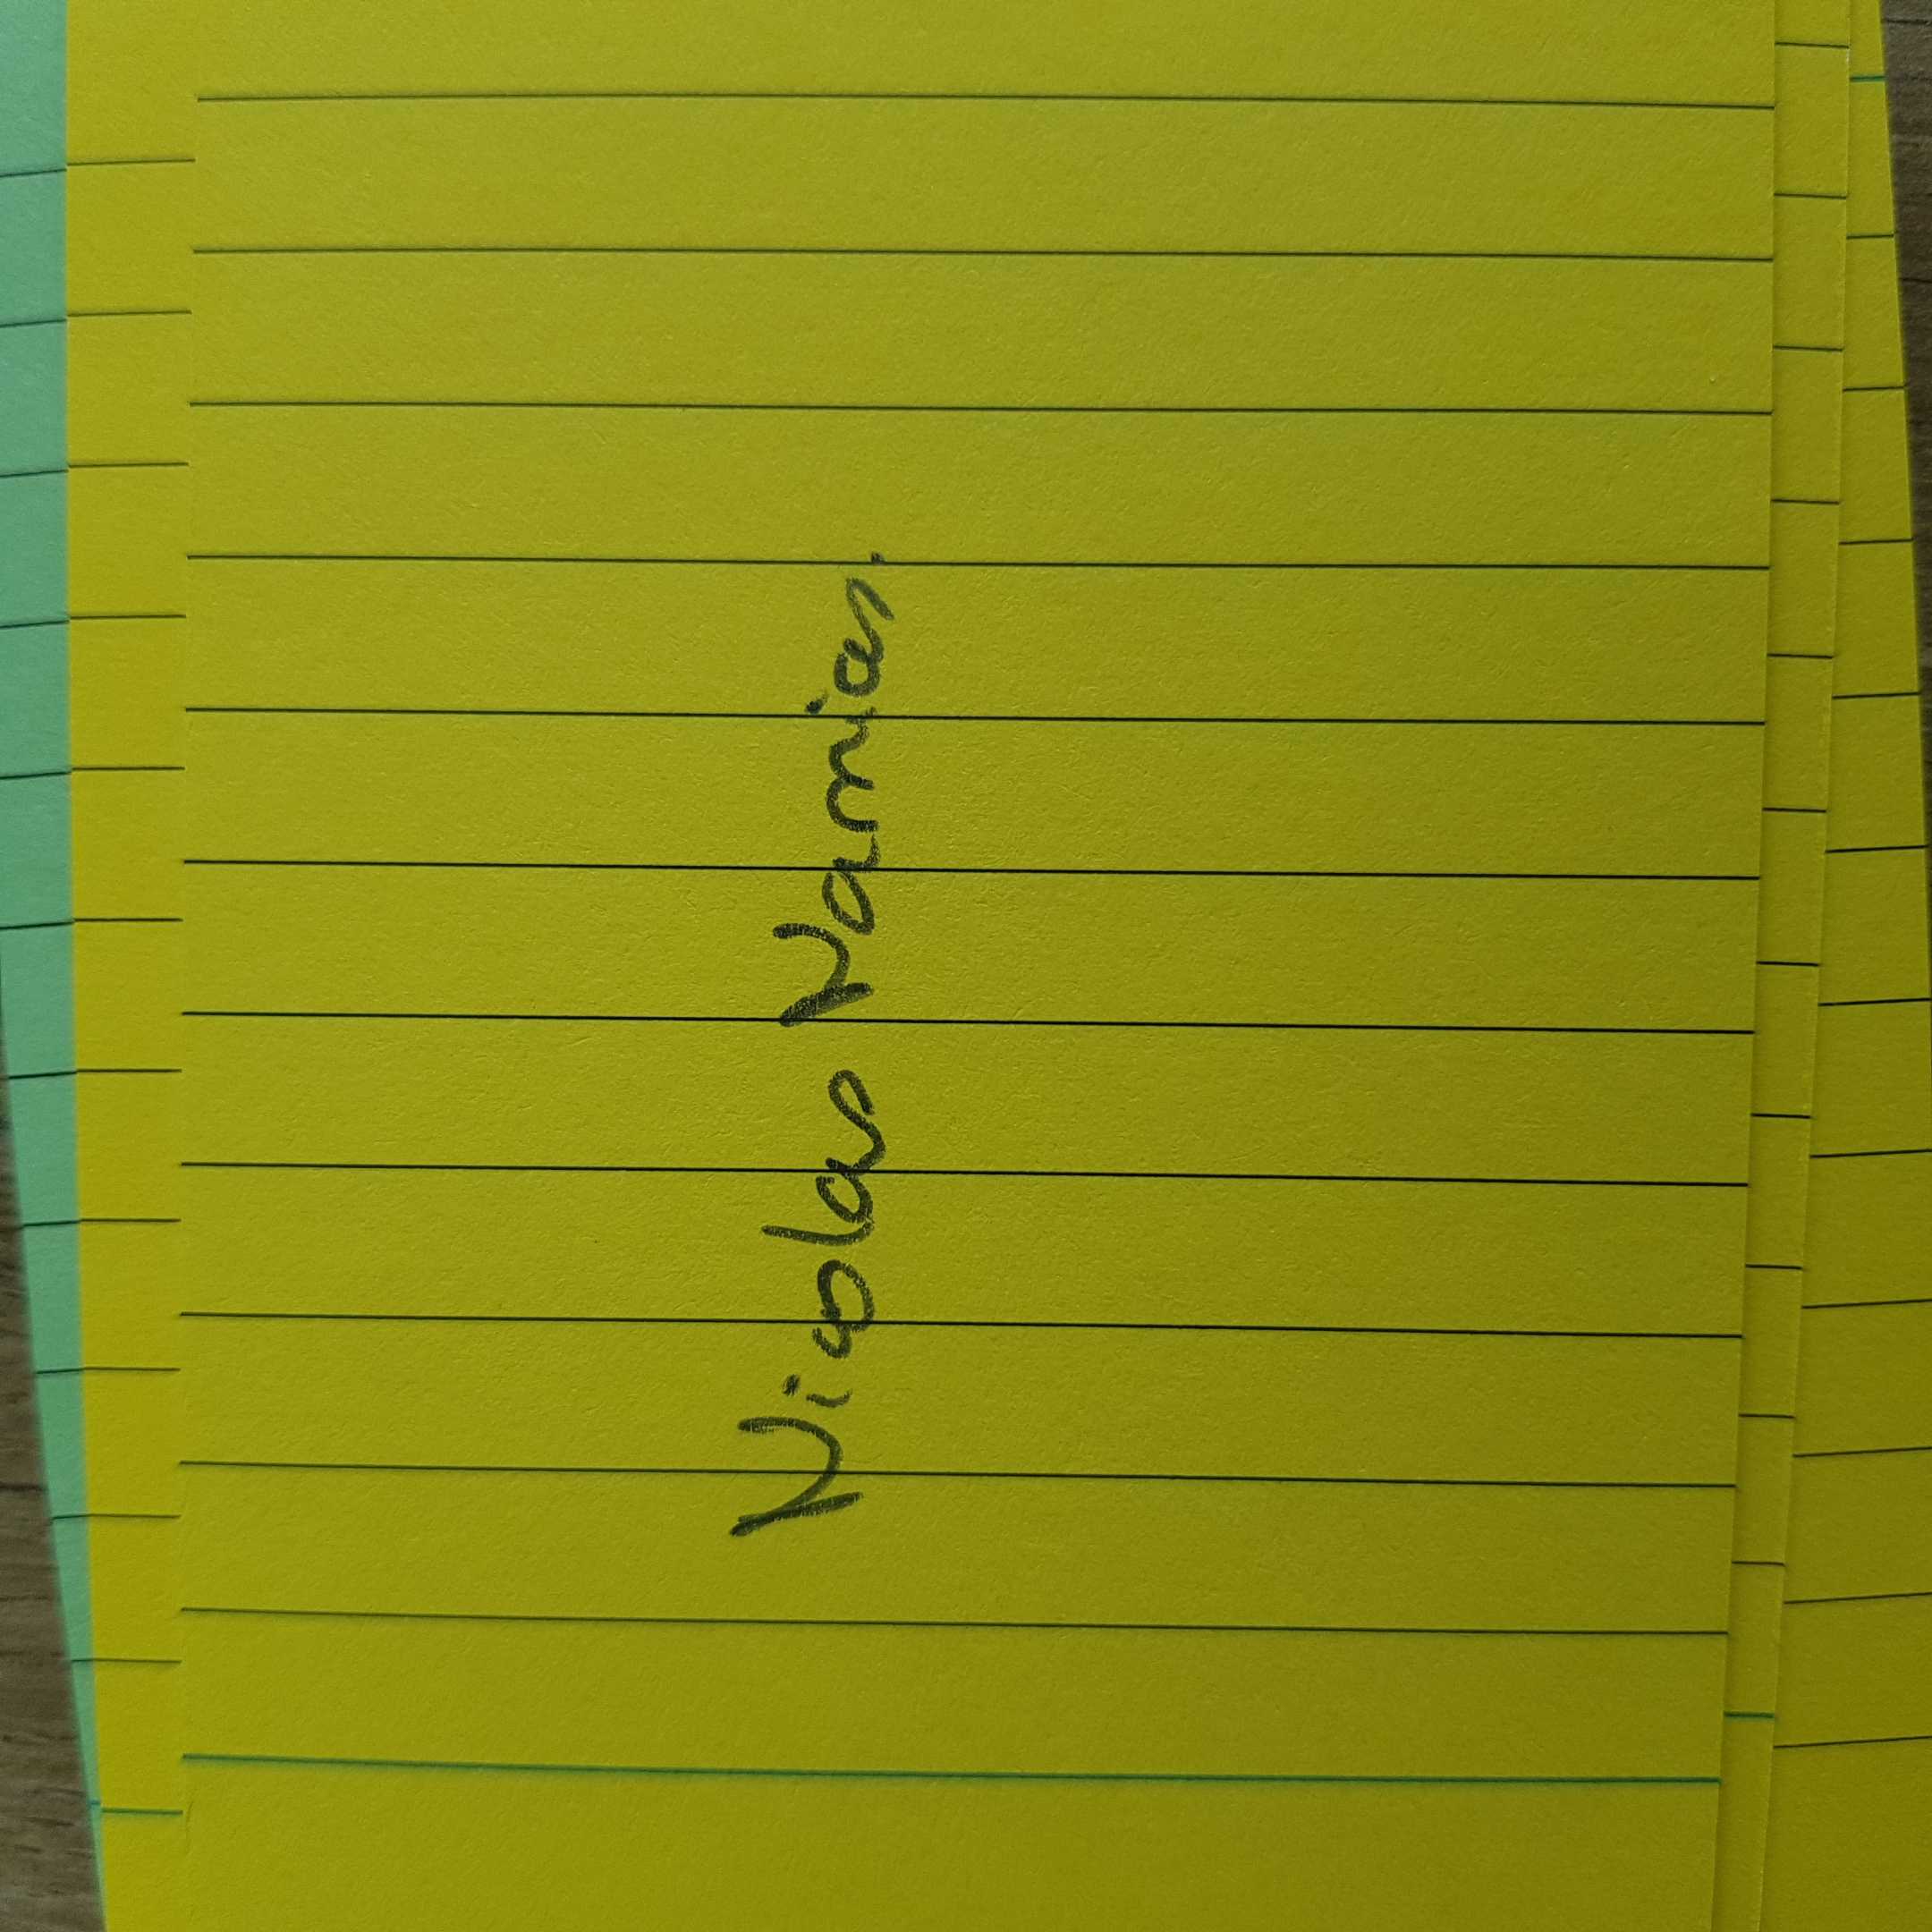 Nicolas Namias.